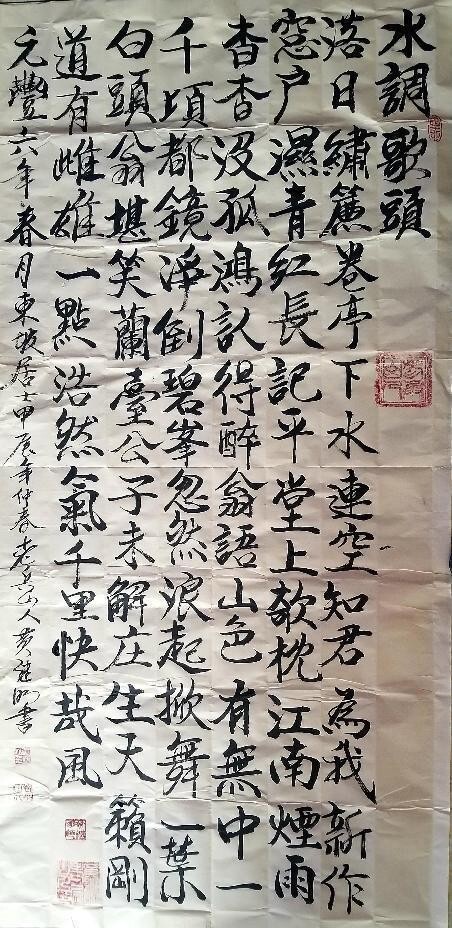 水調歌頭
落日繡簾卷亭下水連空知君為我新作
窓戶濕青紅長記平堂上欹枕江南煙雨
杳杳沒孤鴻認得醉翁語山色有無中一
千頃都鏡淨倒碧峯忽然浪起掀舞一葉
白頭翁堪笑蘭臺公子未解庄生天籟剛
道有雌雄一點浩然氣千里快哉風
元豐六年春月東坡居士甲辰年仲春老山人黄書